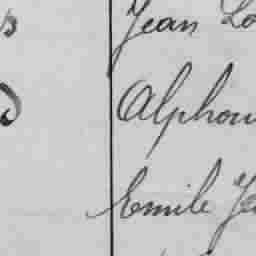 Jean Lo
Alphon
Emile Je